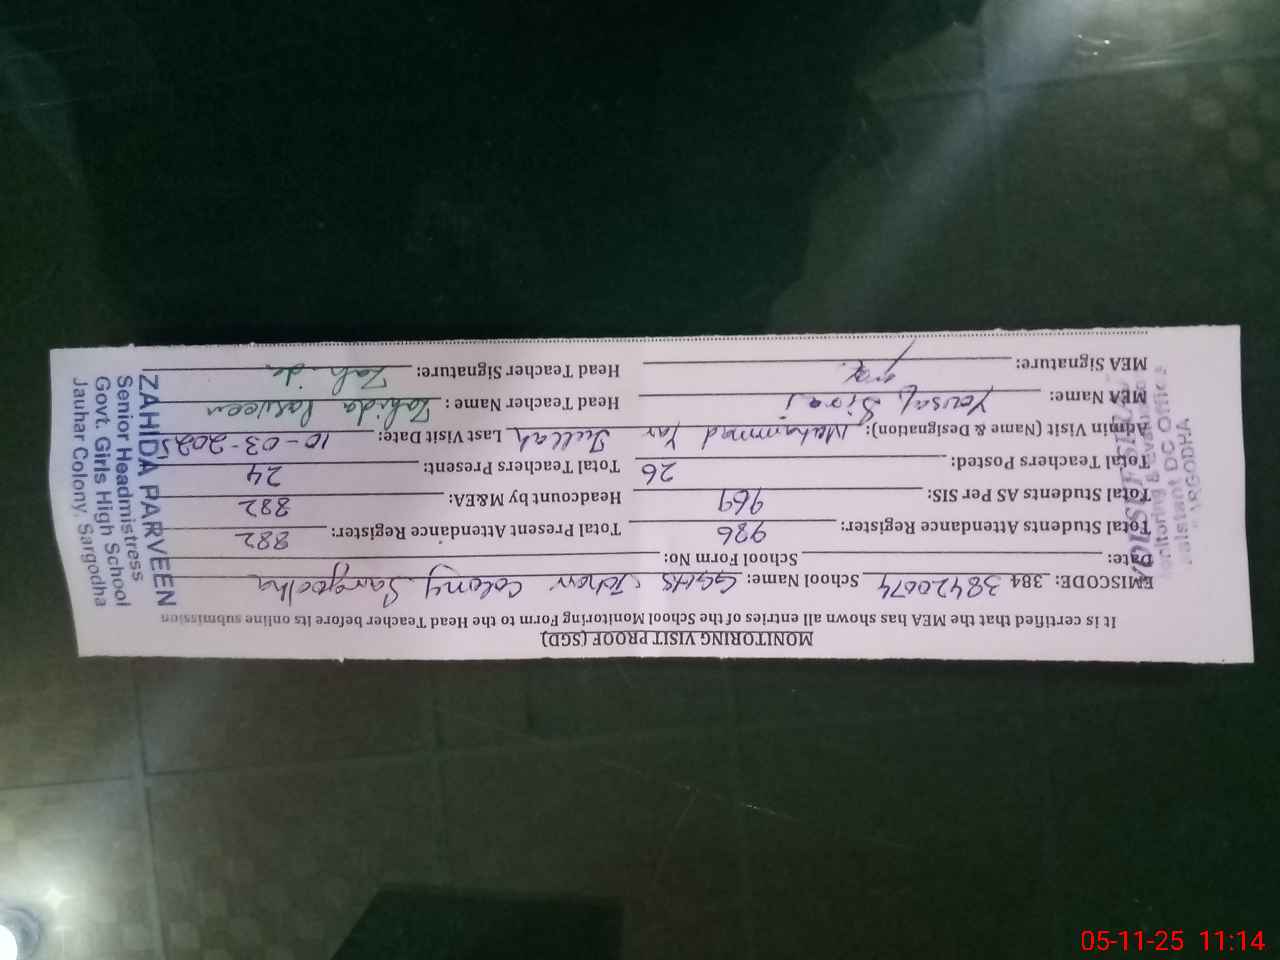 MONITORING VISIT PROOF (SGD)
It is certified that the MEA has shown all entries of the School Monitoring Form to the Head Teacher before its online submission
EMISCODE: 384 38420074 School Name: GGHS Johar Colony Sargodha
Date: School Form No:
Total Students Attendance Register: 986 Total Present Attendance Register: 882
Total Students AS Per SIS: 969 Headcount by M&EA: 882
Total Teachers Posted: 26 Total Teachers Present: 24
Admin Visit (Name & Designation): Muhammad Yar Last Visit Date: 10-03-2025
MEA Name: Yousaf Siraj Head Teacher Name: Zahida Parveen
MEA Signature: Head Teacher Signature: Zahida
ZAHIDA PARVEEN
Senior Headmistress
Govt. Girls High School
Jauhar Colony, Sargodha
05-11-25 11:14